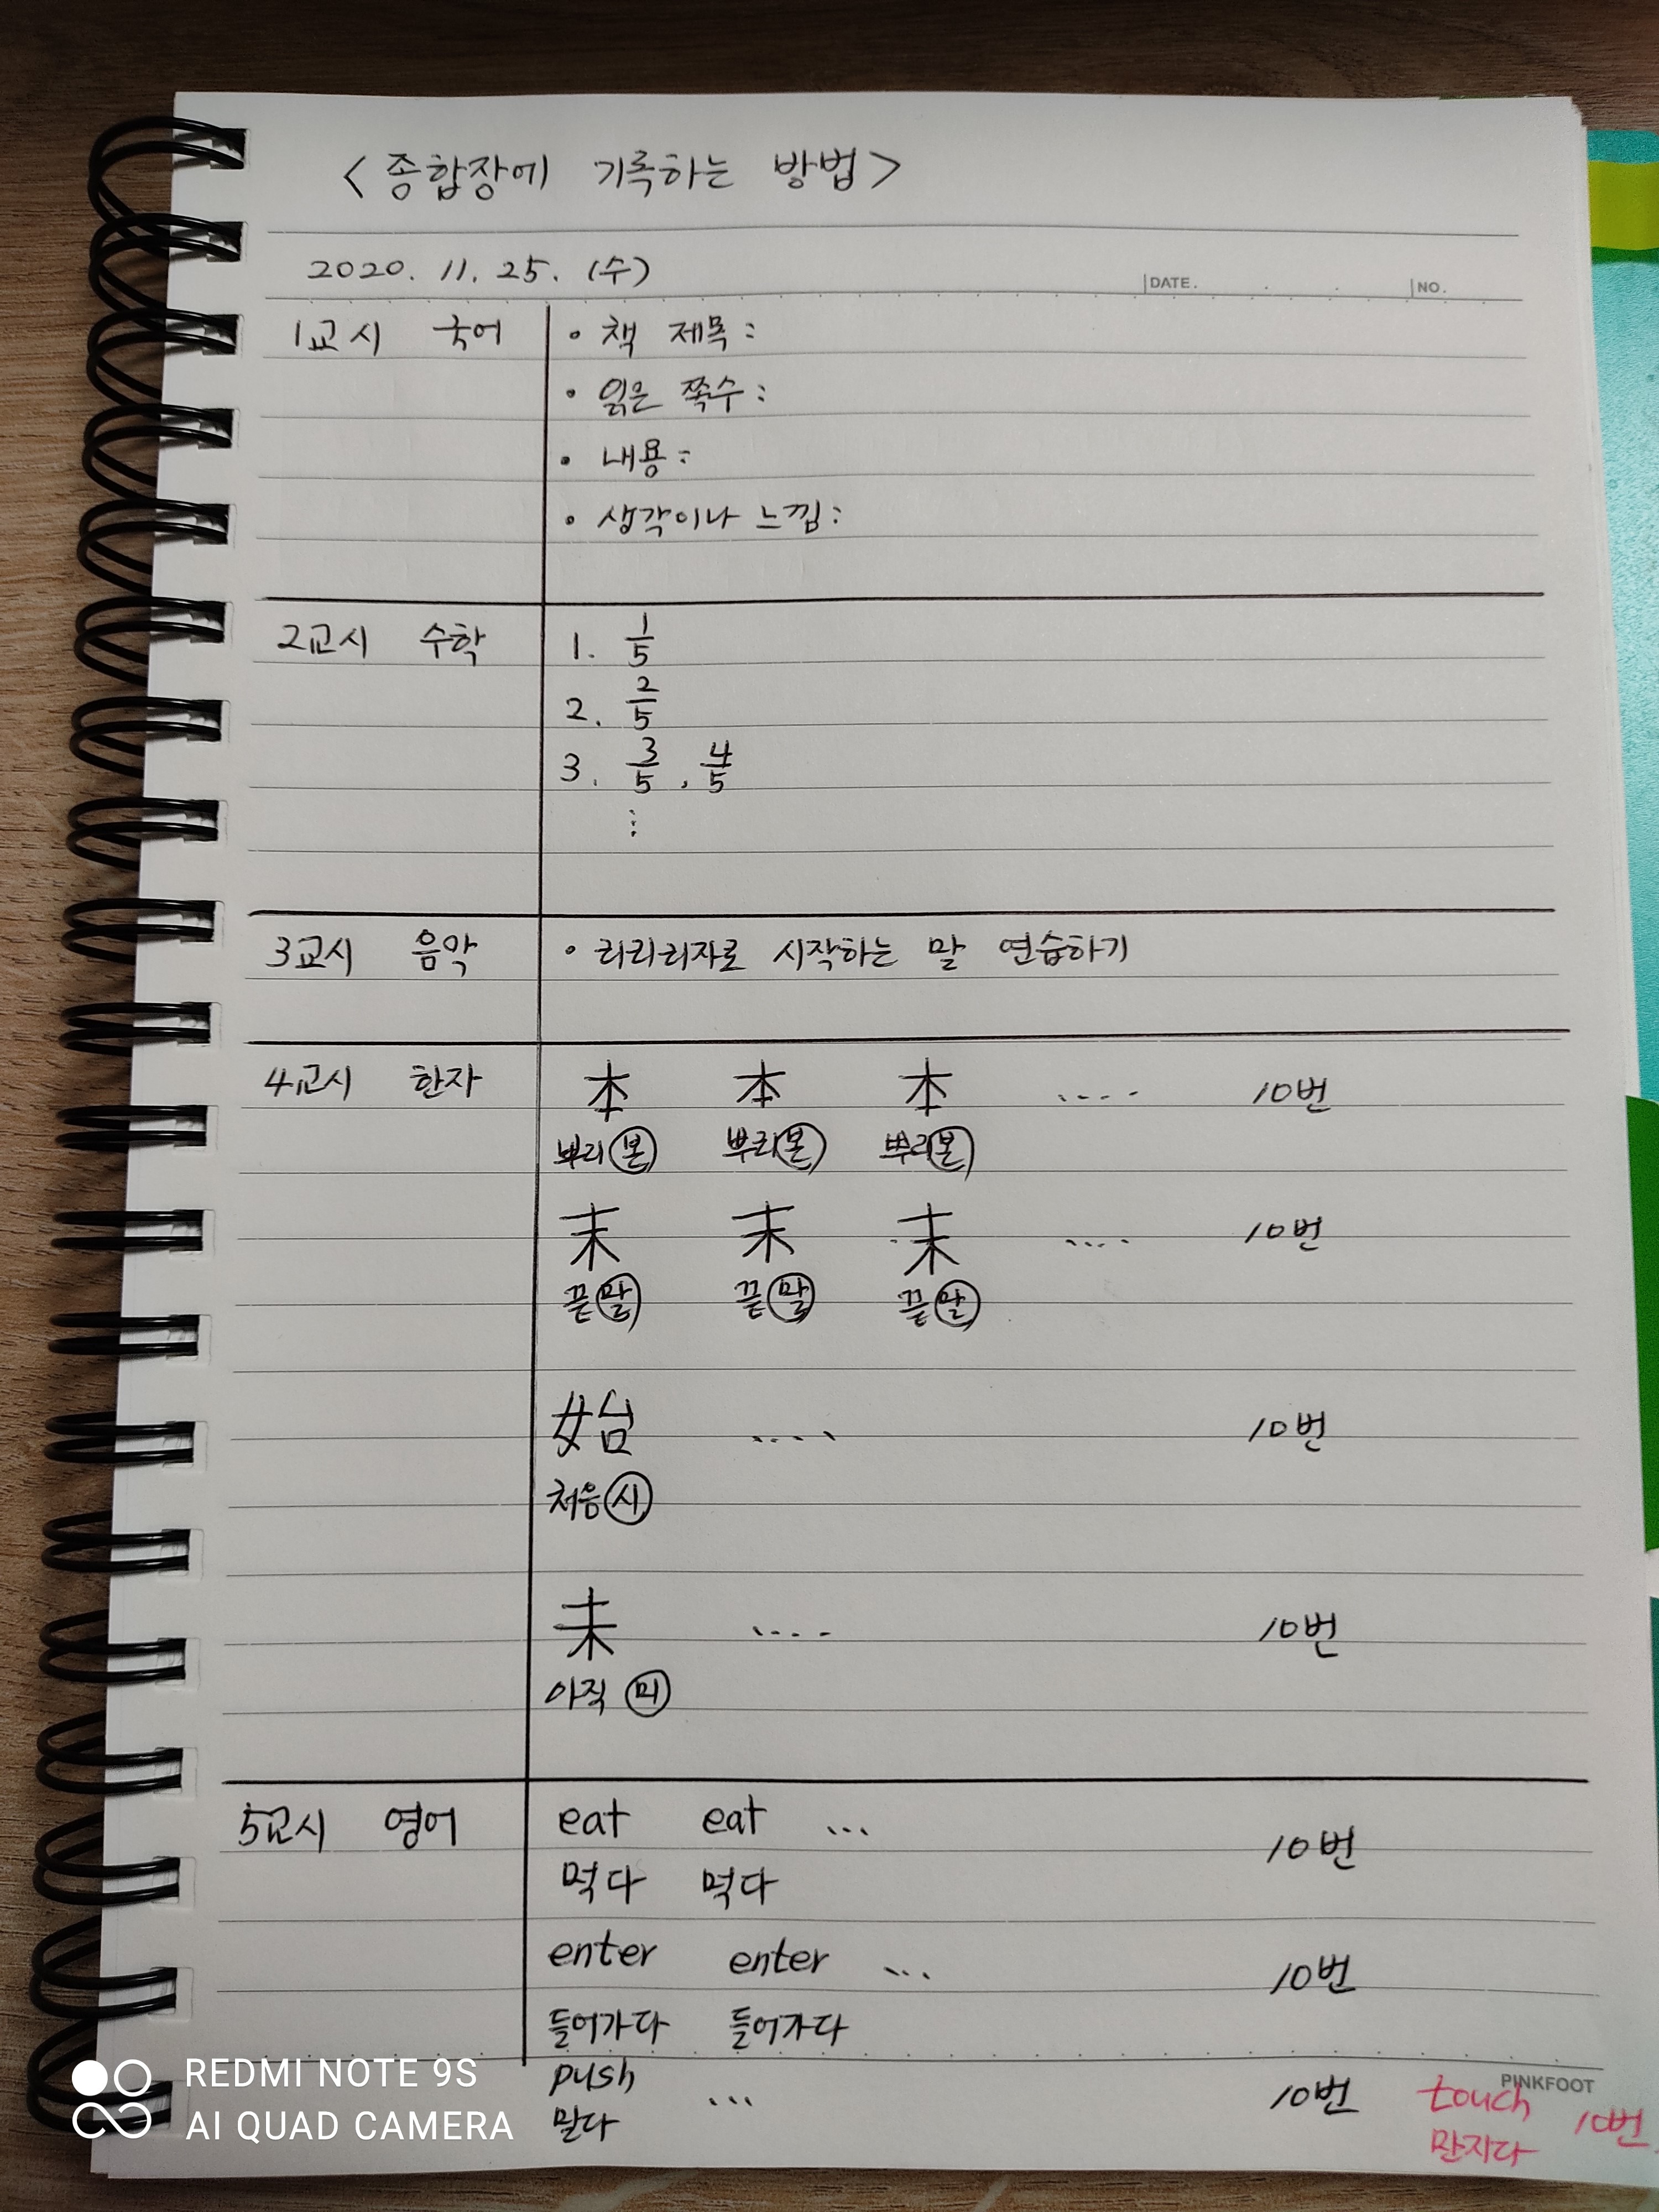 <종합장에 기록하는 방법>
2020. 11. 25. (수)
DATE. NO.
1교시 국어 • 책 제목:
• 읽은 쪽수:
• 내용:
• 생각이나 느낌:
2교시 수학 1. 1/5
2. 2/5
3. 3/5, 4/5
⋮
3교시 음악 • 리리리자로 시작하는 말 연습하기
4교시 한자 本 本 本 .... 10번
뿌리 본 뿌리 본 뿌리 본
末 末 末 .... 10번
끝 말 끝 말 끝 말
始 .... 10번
처음 시
未 .... 10번
아직 미
5교시 영어 eat eat ... 10번
먹다 먹다
enter enter ... 10번
들어가다 들어가다
push ... 10번 touch 10번
말다 만지다
PINKFOOT
REDMI NOTE 9S
AI QUAD CAMERA